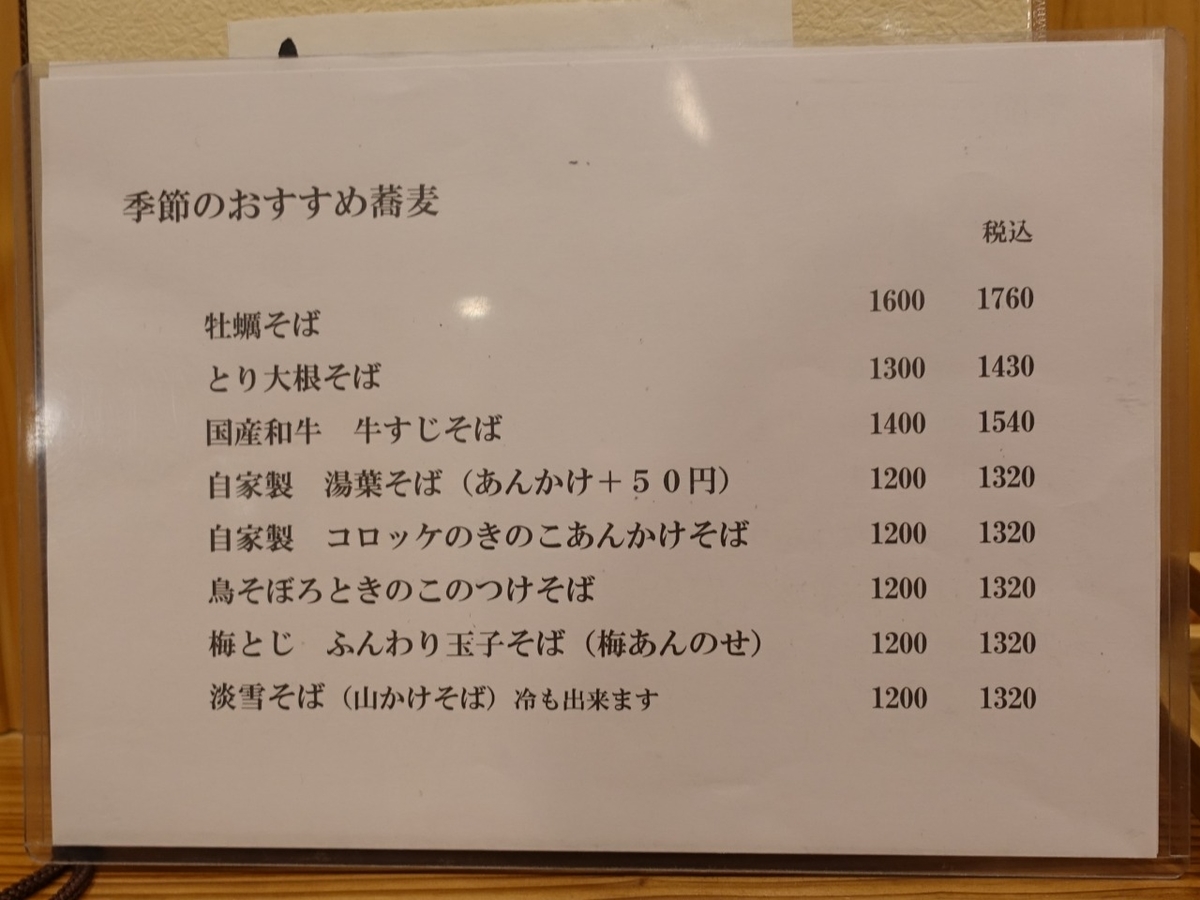 季節のおすすめ蕎麦
税込
牡蠣そば 1600 1760
とり大根そば 1300 1430
国産和牛　牛すじそば 1400 1540
自家製　湯葉そば（あんかけ＋５０円） 1200 1320
自家製　コロッケのきのこあんかけそば 1200 1320
鳥そぼろときのこのつけそば 1200 1320
梅とじ　ふんわり玉子そば（梅あんのせ） 1200 1320
淡雪そば（山かけそば）冷も出来ます 1200 1320